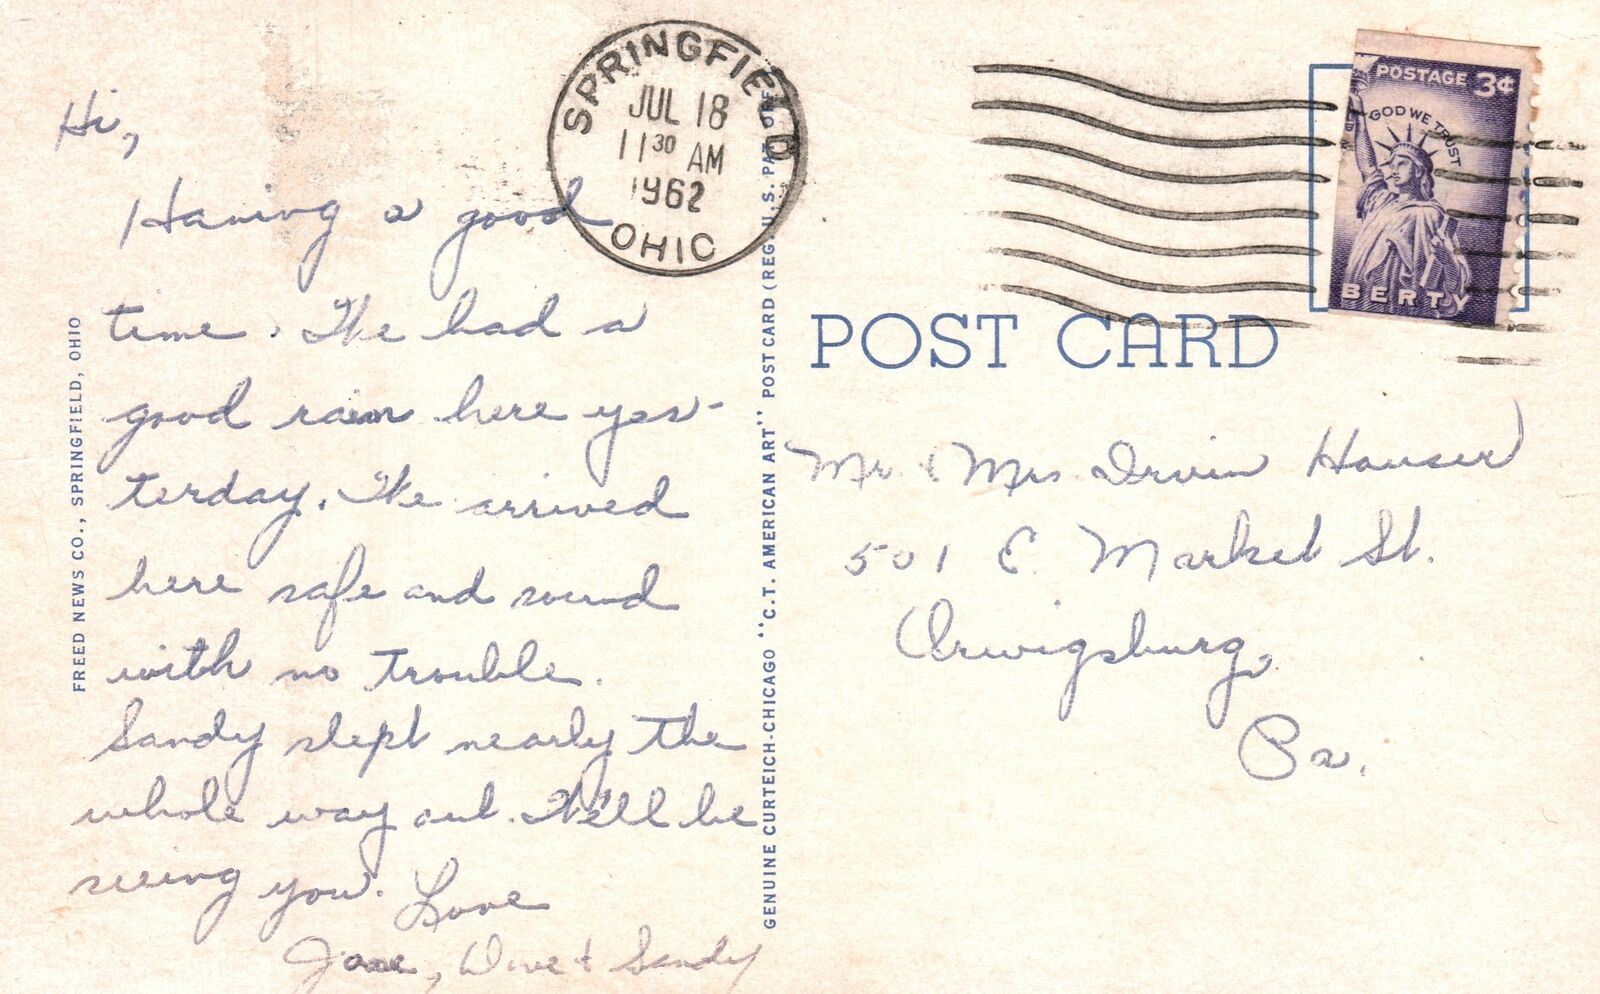 SPRINGFIELD
JUL 18
11 30 AM
1962
OHIO
POSTAGE 3¢
GOD WE TRUST
BERTY
Hi,
Having a good
time. We had a
good rain here yes-
terday. We arrived
here safe and sound
with no trouble.
Sandy slept nearly the
whole way out. We'll be
seeing you. Love
Jane, Dave & Sandy
FREED NEWS CO., SPRINGFIELD, OHIO
GENUINE CURTEICH-CHICAGO "C.T. AMERICAN ART" POST CARD (REG. U.S. PAT. OFF.)
POST CARD
Mr & Mrs Irvin Hauser
501 E. Market St.
Orwigsburg,
Pa.